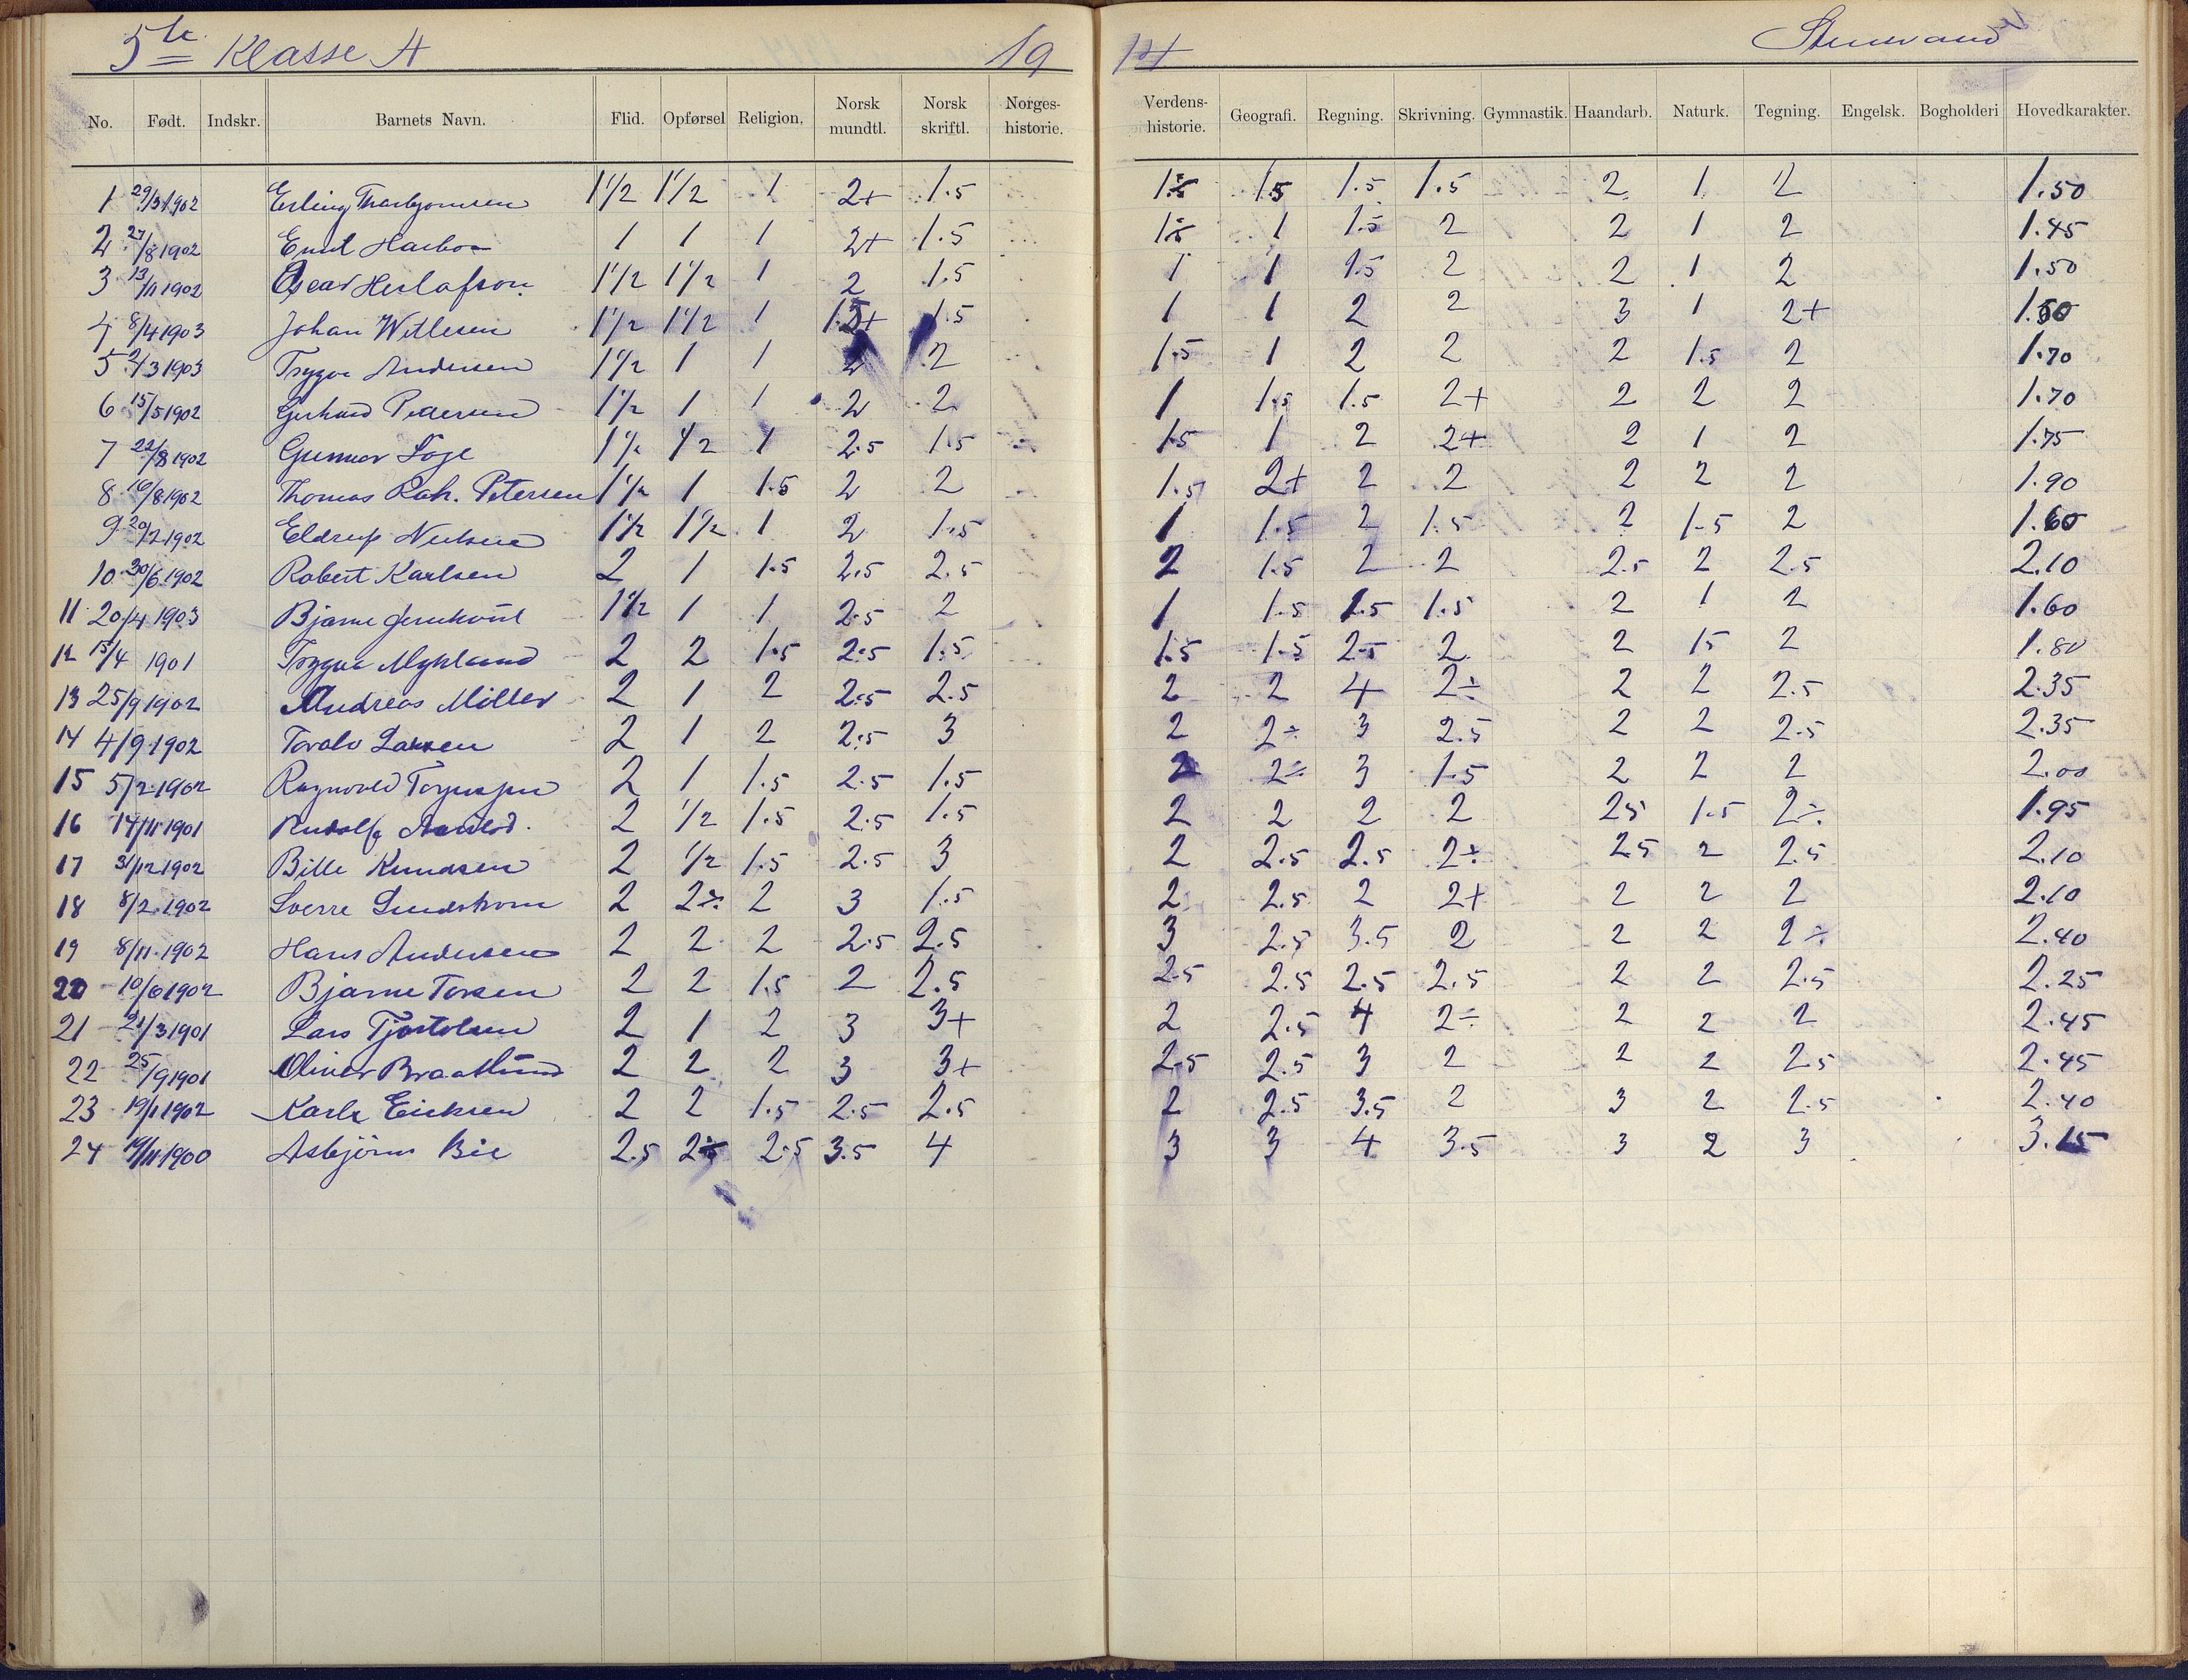 5te Klasse A 19 14
No. Født. Indskr. Barnets Navn. Flid. Opførsel Religion. Norsk mundtl. Norsk skriftl. Norges-historie. Verdens-historie. Geografi. Regning. Skrivning. Gymnastik. Haandarb. Naturk. Tegning. Engelsk. Bogholderi Hovedkarakter.
1 29/3 1902 Erling Thorbjørnsen 1 1/2 1 1/2 1 2+ 1.5 1.5 1.5 1.5 1.5 2 1 2 1.50
2 27/8 1902 Emil 1 1 1 2+ 1.5 1.5 1 1.5 2 2 1 2 1.45
3 13/11 1902 Oscar 1 1/2 1 1/2 1 2 1.5 1 1 1.5 2 2 1 2 1.50
4 8/4 1903 Johan 1 1/2 1 1/2 1 1.5+ 1.5 1 1 2 2 3 1 2+ 1.50
5 2/3 1903 Trygve Andersen 1 1/2 1 1 2 2 1.5 1 2 2 2 1.5 2 1.70
6 15/5 1902 Gerhard Pedersen 1 1/2 1 1 2 2 1 1.5 1.5 2+ 2 2 2 1.70
7 22/8 1902 Gunnar 1 1/2 1/2 1 2.5 1.5 1.5 1 2 2+ 2 1 2 1.75
8 16/8 1902 Thomas Petersen 1 1/2 1 1.5 2 2 1.5 2+ 2 2 2 2 2 1.90
9 20/2 1902 Eldrup Nielsen 1 1/2 1 1/2 1 2 1.5 1 1.5 2 1.5 2 1.5 2 1.60
10 30/6 1902 Robert Karlsen 2 1 1.5 2.5 2.5 2 1.5 2 2 2.5 2 2.5 2.10
11 20/4 1903 Bjarne 1 1/2 1 1 2.5 2 1 1.5 1.5 1.5 2 1 2 1.60
12 15/4 1901 Trygve Myhland 2 2 1.5 2.5 1.5 1.5 1.5 2.5 2 2 1.5 2 1.80
13 25/9 1902 Andreas Miller 2 1 2 2.5 2.5 2 2 4 2÷ 2 2 2.5 2.35
14 4/9 1902 Torolv Larsen 2 1 2 2.5 3 2 2÷ 3 2.5 2 2 2.5 2.35
15 5/2 1902 Ragnvald 2 1 1.5 2.5 1.5 2 2÷ 3 1.5 2 2 2 2.00
16 14/11 1901 Rudolf 2 1/2 1.5 2.5 1.5 2 2 2 2 2.5 1.5 2÷ 1.95
17 31/12 1902 Bille Knudsen 2 1/2 1.5 2.5 3 2 2.5 2.5 2÷ 2.5 2 2.5 2.10
18 8/2 1902 Sverre Lindstrom 2 2÷ 2 3 1.5 2 2.5 2 2+ 2 2 2 2.10
19 8/11 1902 Hans Andersen 2 2 2 2.5 2.5 3 2.5 3.5 2 2 2 2÷ 2.40
20 10/6 1902 Bjarne Torsen 2 2 1.5 2 2.5 2.5 2.5 2.5 2.5 2 2 2.5 2.25
21 21/3 1901 Lars Tjostolsen 2 1 2 3 3+ 2 2.5 4 2÷ 2 2 2 2.45
22 25/9 1901 Oliver Braatlund 2 2 2 3 3+ 2.5 2.5 3 2 2 2 2.5 2.45
23 19/1 1902 Karl Ericksen 2 2 1.5 2.5 2.5 2 2.5 3.5 2 3 2 2.5 2.40
24 19/11 1900 Asbjörn Bie 2.5 2.5 2.5 3.5 4 3 3 4 3.5 3 2 3 3.15